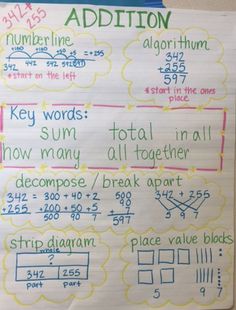 342 +
255
ADDITION
numberline
+100 +100 +50 +5 = +255
342 442 542 592 597
*start on the left
algorithum
342
+ 255
597
*start in the ones
place
Key words:
sum total in all
how many all together
decompose / break apart
342 = 300 + 40 + 2
+255 +200 + 50 + 5
500 90 7
500
90
+ 7
597
342 + 255
5 9 7
strip diagram
whole
?
342 255
part part
place value blocks
5 9 7